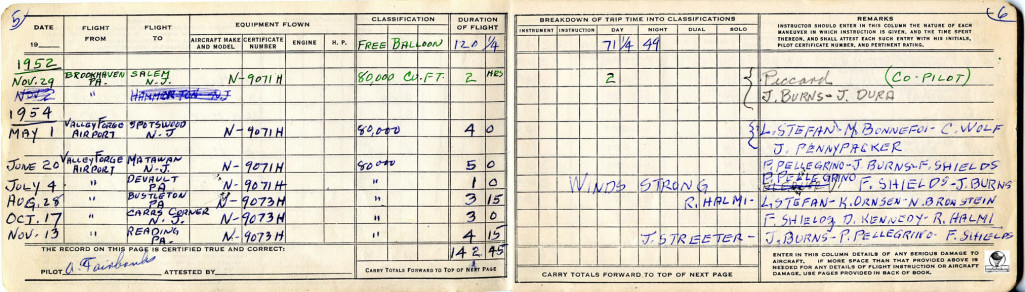 5
DATE
19
FLIGHT FROM
FLIGHT TO
EQUIPMENT FLOWN
AIRCRAFT MAKE AND MODEL
CERTIFICATE NUMBER
ENGINE
H. P.
CLASSIFICATION
FREE BALLOON
DURATION OF FLIGHT
120 1/4
1952
NOV. 29 BROOKHAVEN PA. SALEM N.J. N-9071H 80,000 CU.FT. 2 HRS
NOV. 2 " HAMMERTON NJ
1954
MAY 1 VALLEY FORGE AIRPORT SPOTSWOOD N.J N-9071H 80,000 4 0
JUNE 20 VALLEY FORGE AIRPORT MATAWAN N.J. N-9071H 80,000 5 0
JULY 4 " DEVAULT PA N-9071H " 1 0
AUG. 28 " BUSTLETON PA N-9073H " 3 15
OCT. 17 " CARRS CORNER N.J. N-9073H " 3 0
NOV. 13 " READING PA. N-9073H " 4 15
THE RECORD ON THIS PAGE IS CERTIFIED TRUE AND CORRECT:
142 45
PILOT A. Fairbanks ATTESTED BY
CARRY TOTALS FORWARD TO TOP OF NEXT PAGE
6
BREAKDOWN OF TRIP TIME INTO CLASSIFICATIONS
INSTRUMENT
INSTRUCTION
DAY
NIGHT
DUAL
SOLO
71 1/4 49
REMARKS
INSTRUCTOR SHOULD ENTER IN THIS COLUMN THE NATURE OF EACH
MANEUVER IN WHICH INSTRUCTION IS GIVEN, AND THE TIME SPENT
THEREON, AND SHALL ATTEST EACH SUCH ENTRY WITH HIS INITIALS,
PILOT CERTIFICATE NUMBER, AND PERTINENT RATING.
2 Piccard (CO-PILOT)
J. BURNS - J. DURA
L. STEFAN - M. BONNEFOI - C. WOLF
J. PENNYPACKER
P. PELLEGRINO - J. BURNS - F. SHIELDS
WINDS STRONG P. PELLEGRINO F. SHIELDS - J. BURNS
R. HALMI - L. STEFAN - K. ORNSEN - N. BRONSTEIN
F. SHIELDS D. KENNEDY - R. HALMI
J. STREETER - J. BURNS - P. PELLEGRINO - F. SHIELDS
ENTER IN THIS COLUMN DETAILS OF ANY SERIOUS DAMAGE TO
AIRCRAFT. IF MORE SPACE THAN THAT PROVIDED ABOVE IS
NEEDED FOR ANY DETAILS OF FLIGHT INSTRUCTION OR AIRCRAFT
DAMAGE, USE PAGES PROVIDED IN BACK OF BOOK.
CARRY TOTALS FORWARD TO TOP OF NEXT PAGE